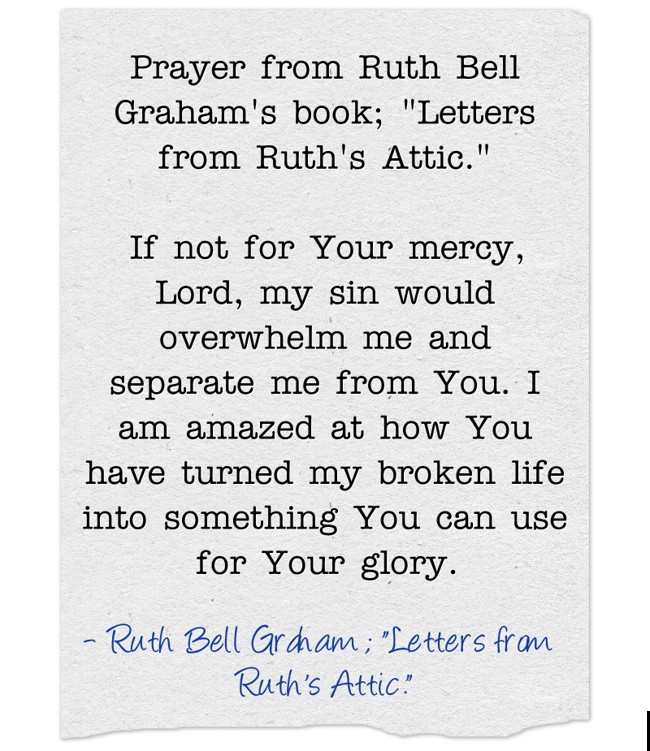 Prayer from Ruth Bell
Graham's book; "Letters
from Ruth's Attic."
If not for Your mercy,
Lord, my sin would
overwhelm me and
separate me from You. I
am amazed at how You
have turned my broken life
into something You can use
for Your glory.
- Ruth Bell Graham; "Letters from
Ruth's Attic."